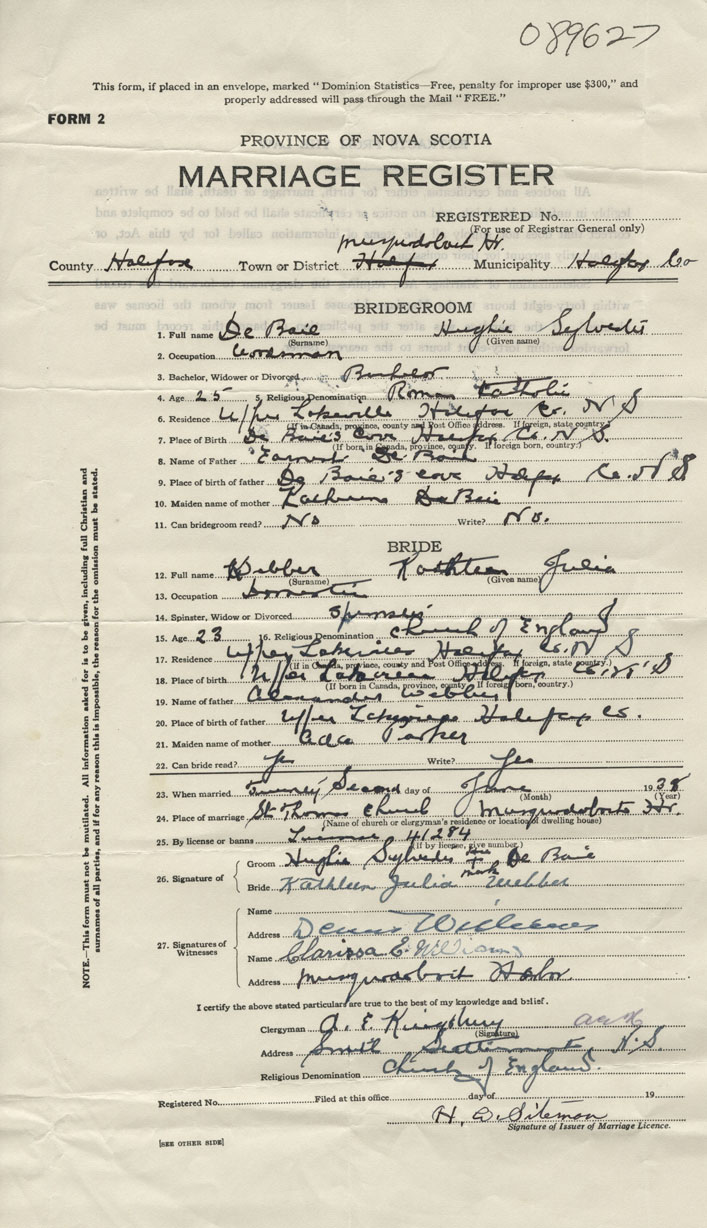 089627
This form, if placed in an envelope, marked "Dominion Statistics—Free, penalty for improper use $300," and
properly addressed will pass through the Mail "FREE."
FORM 2
PROVINCE OF NOVA SCOTIA
MARRIAGE REGISTER
REGISTERED No.
(For use of Registrar General only)
Musquodoboit Hr.
County Halifax Town or District Halifax Municipality Halifax Co
BRIDEGROOM
1. Full name De Baie Hughie Sylvester
(Surname) (Given name)
2. Occupation Woodsman
3. Bachelor, Widower or Divorced Bachelor
4. Age 25 5. Religious Denomination Roman Katholic
6. Residence Upper Lakeville Halifax Co. N S
(If in Canada, province, county and Post Office address. If foreign, state country.)
7. Place of Birth De Baie's Cove Halifax Co. N.S.
(If born in Canada, province, county. If foreign born, country.)
8. Name of Father Earnest De Baie
9. Place of birth of father De Baie's Cove Halifax Co. N S
10. Maiden name of mother De Baie
11. Can bridegroom read? No Write? No.
BRIDE
12. Full name Webber Kathleen Julia
(Surname) (Given name)
13. Occupation Domestic
14. Spinster, Widow or Divorced Spinster
15. Age 23 16. Religious Denomination Church of England
17. Residence Upper Halifax Co. N S
(If in Canada, province, county and Post Office address. If foreign, state country.)
18. Place of birth Upper Halifax Co. N S
(If born in Canada, province, county. If foreign born, country.)
19. Name of father Alexander Webber
20. Place of birth of father Upper Halifax Co.
21. Maiden name of mother Ada Parker
22. Can bride read? Yes Write? Yes
23. When married Twenty Second day of June 1938
(Month) (Year)
24. Place of marriage St Thomas Church Musquodoboit Hr.
(Name of church or clergyman's residence or location of dwelling house)
25. By license or banns License 41284
(If by license, give number.)
26. Signature of
Groom Hughie Sylvester his X mark De Baie
Bride Kathleen Julia Webber
27. Signatures of Witnesses
Name
Address Dennis Williams
Name Clarissa E. Williams
Address Musquodoboit Harbor
I certify the above stated particulars are true to the best of my knowledge and belief.
Clergyman A. E. Kingsbury
(Signature)
Address N.S.
Religious Denomination Church of England.
Registered No. Filed at this office day of 19
H. D. Siteman
Signature of Issuer of Marriage Licence.
[SEE OTHER SIDE]
NOTE.—This form must not be mutilated. All information asked for is to be given, including full Christian and
surnames of all parties, and if for any reason this is impossible, the reason for the omission must be stated.